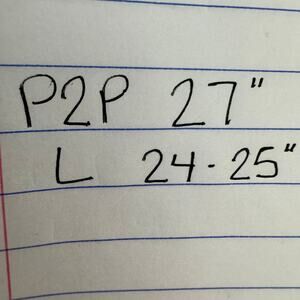 P2P 27"
L 24-25"